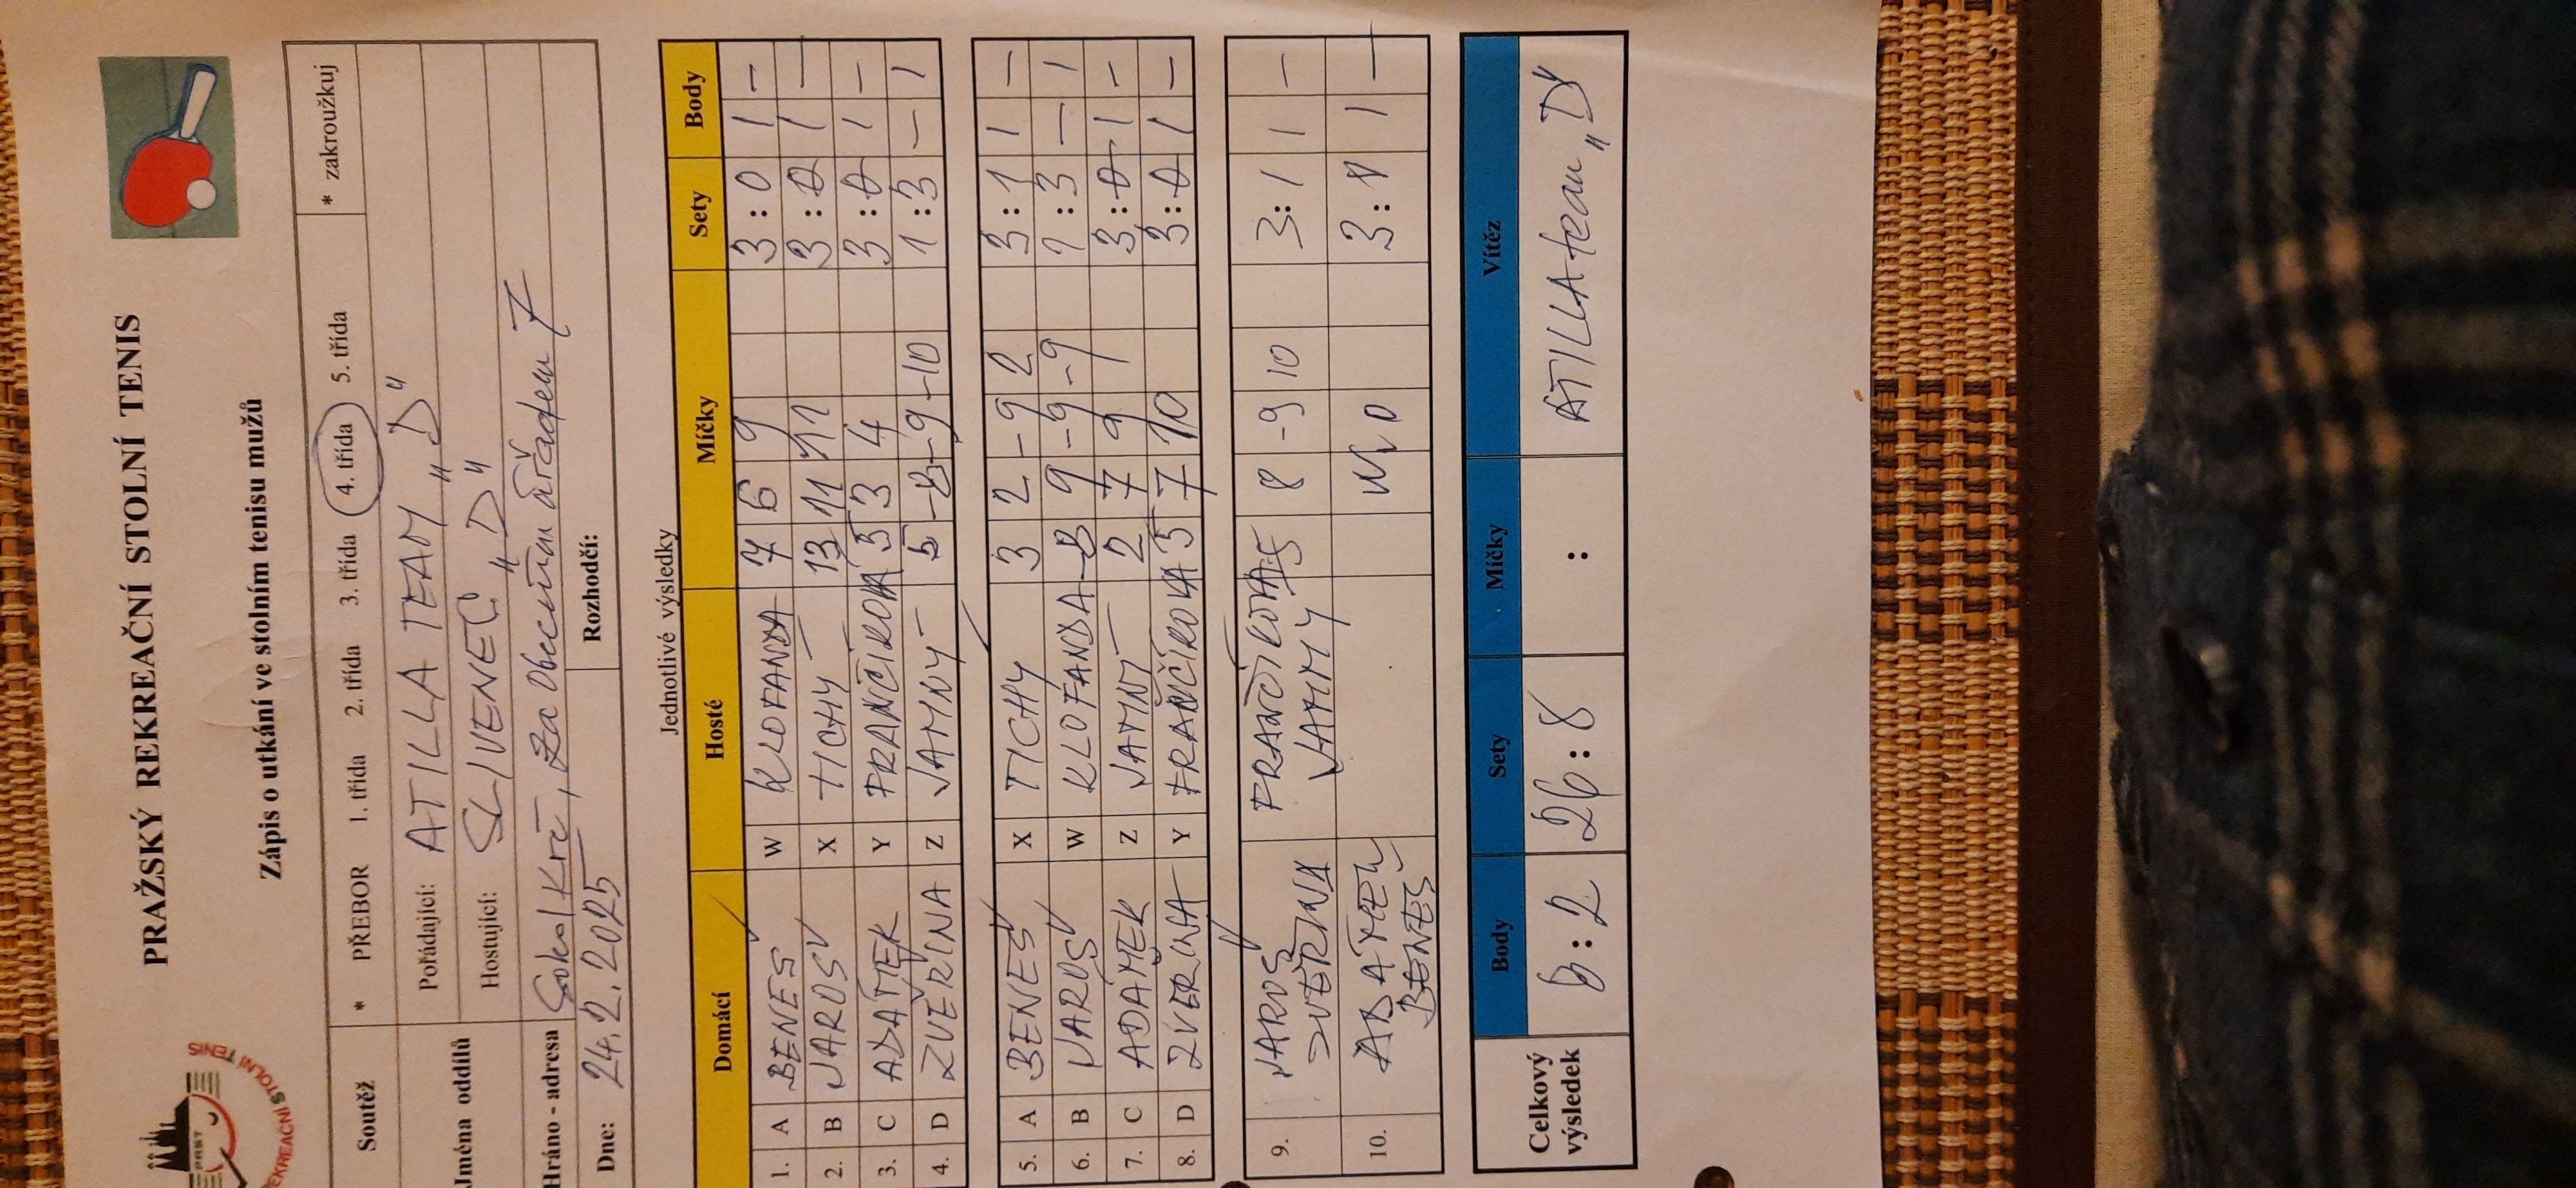 PRAŽSKÝ REKREAČNÍ STOLNÍ TENIS
Zápis o utkání ve stolním tenisu mužů
Soutěž * PŘEBOR 1. třída 2. třída 3. třída 4. třída 5. třída * zakroužkuj
Jména oddílů Pořádající: ATILLA TEAM „D"
Hostující: SLIVENEC „D"
Hráno - adresa Sokol Krč, Za Obecním úřadem 7
Dne: 24.2.2025 Rozhodčí:
Jednotlivé výsledky
Domácí Hosté Míčky Sety Body
1. A BENEŠ W KLOFANDA 7 6 9 3 : 0 1 –
2. B JAROŠ X TICHÝ 13 11 11 3 : 0 1 –
3. C ADÁMEK Y FRANČÍKOVÁ 5 3 4 3 : 0 1 –
4. D ZVĚŘINA Z JAMNÝ 5 -8 -9 -10 1 : 3 – 1
5. A BENEŠ X TICHÝ 3 2 -9 2 3 : 1 1 –
6. B JAROŠ W KLOFANDA -8 9 -9 -9 1 : 3 – 1
7. C ADÁMEK Z JAMNÝ 2 7 9 3 : 0 1 –
8. D ZVĚŘINA Y FRANČÍKOVÁ 5 7 10 3 : 0 1 –
9. JAROŠ FRANČÍKOVÁ 5 8 -9 10 3 : 1 1 –
ZVĚŘINA JAMNÝ
10. ADÁMEK W O 3 : 0 1 –
BENEŠ
Body Sety Míčky Vítěz
Celkový výsledek 8 : 2 26 : 8 : ATILLA team „D"